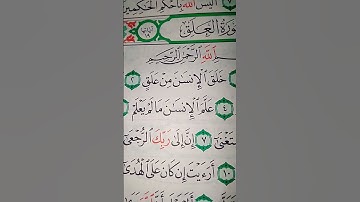 أليس الله بأحكم الحكمين
سورة العلق
الله الرحمن الرحيم
خلق الإنسن من علق ٢
٤ علم الإنسن ما لم يعلم
٧ إن إلى ربك الرجعى
١٠ أرءيت إن كان على الهدى